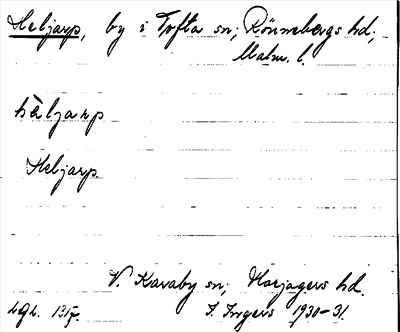 Heljarp, by i Tofta sn; Rönnebergs hd;
Malm. l.
hàljarp
Heljarp.
V. Karaby sn; Harjagers hd.
I. Ingers 1930-31.